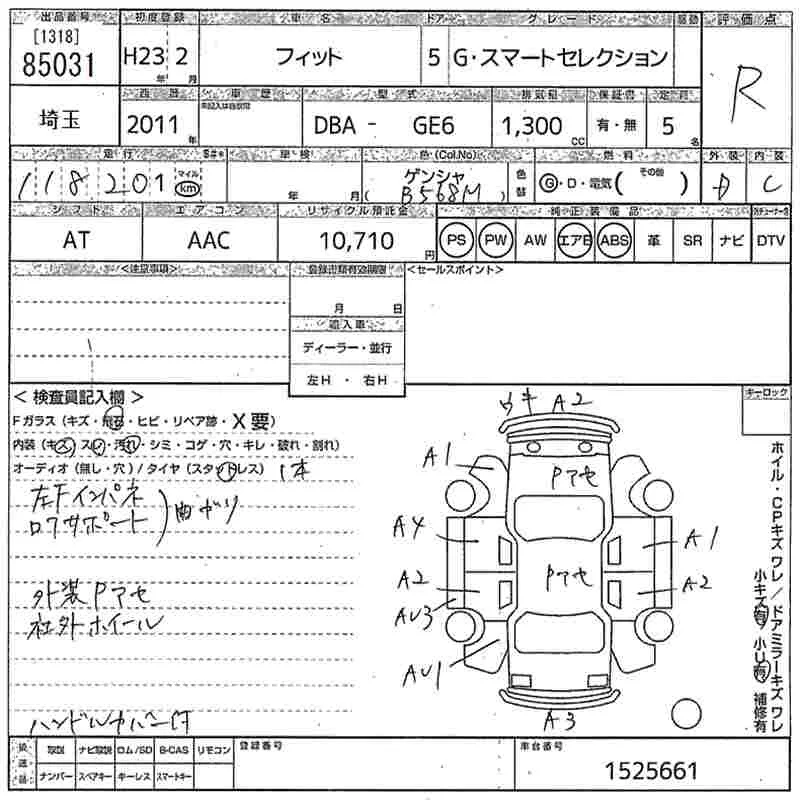 出品番号 初度登録 車名 ドア グレード 駆動 評価点
[1318]
85031 H23年 2月 フィット 5 G・スマートセレクション R
西暦 車歴 型式 排気量 保証書 定員
未記入は自家用
埼玉 2011年 DBA - GE6 1,300cc 有・無 5名
走行 車検 色(Col.No) 燃料 外装 内装
118201 マイル km 年 月 ゲンシャ ( B568M ) 色替 G・D・電気( その他 ) D C
シフト エアコン リサイクル預託金 純正装備品
AT AAC 10,710円 PS PW AW エアB ABS 革 SR ナビ DTV
<注意事項> 登録書類有効期限 <セールスポイント>
月 日
輸入車
ディーラー・並行
左H ・ 右H
< 検査員記入欄 >
Fガラス(キズ・飛石・ヒビ・リペア跡・X要)
内装(キズ・スレ・汚れ・シミ・コゲ・穴・キレ・破れ・割れ)
オーディオ(無し・穴)/タイヤ(スタッドレス) 1本
左Fインパネ
ロアサポート ) 曲がり
外装Pアセ
社外ホイール
ハンドルカバー付
キーロック
ウキ A2
A1 Pアセ
A4 A1
A2 Pアセ A2
AU3
AU1
A3
ホイル・CPキズワレ/ドアミラーキズワレ
小キズ有 小U有 補修有
後送品 取説 ナビ取説 ロム/SD B-CAS リモコン 登録番号 車台番号
ナンバー スペアキー キーレス スマートキー 1525661